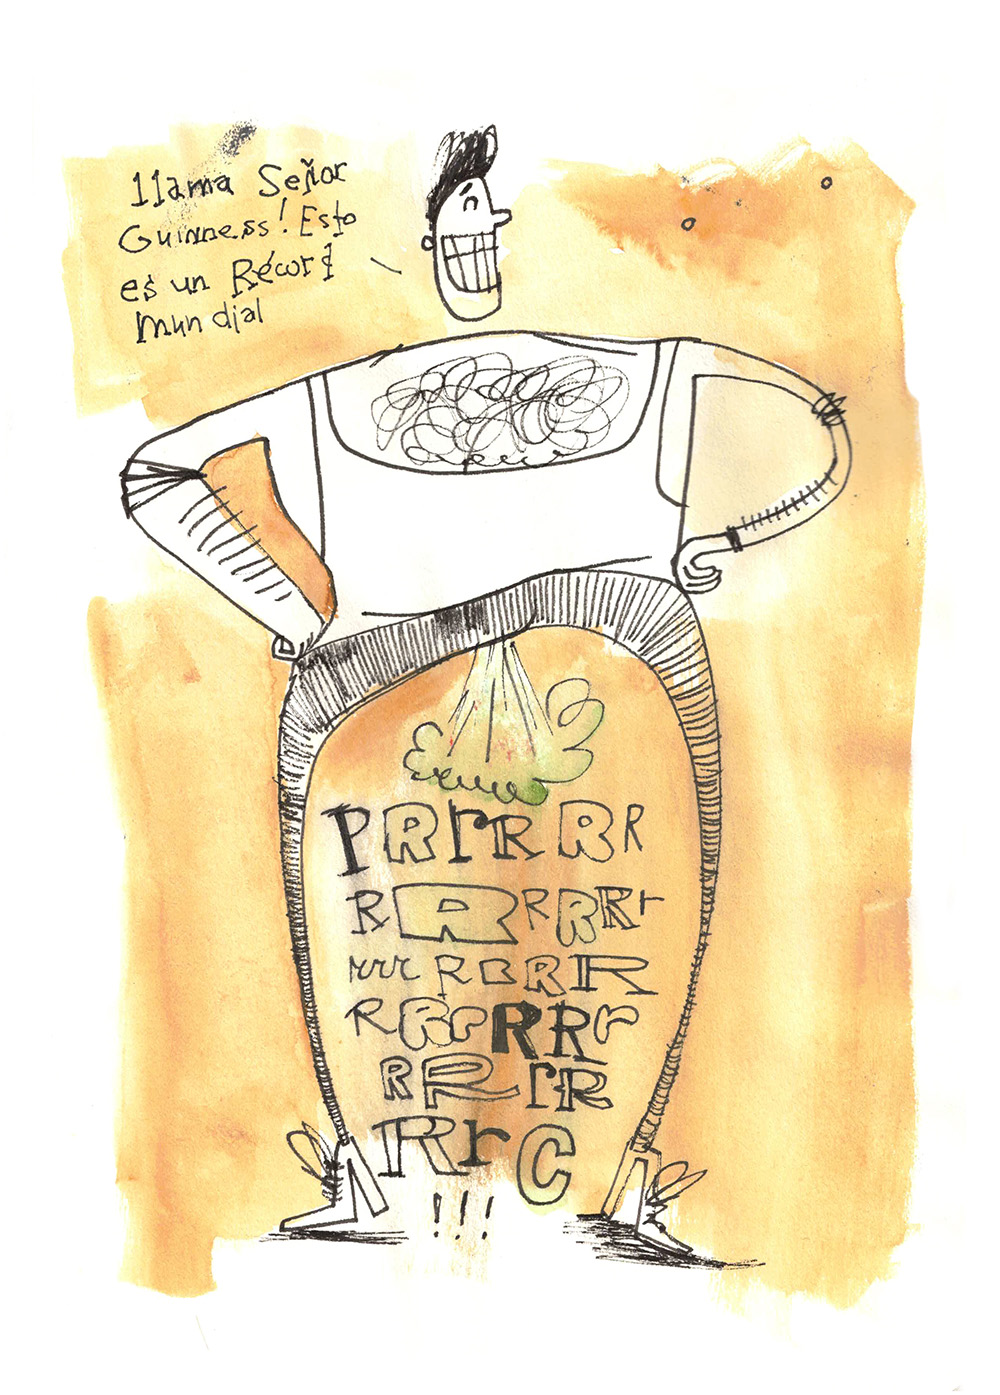 llama Señor
Guinness! Esto
es un Récord
mundial
PRrRRR
RRRRRr
rrrRRRR
RRrRRr
RRrR
RrC
!!!